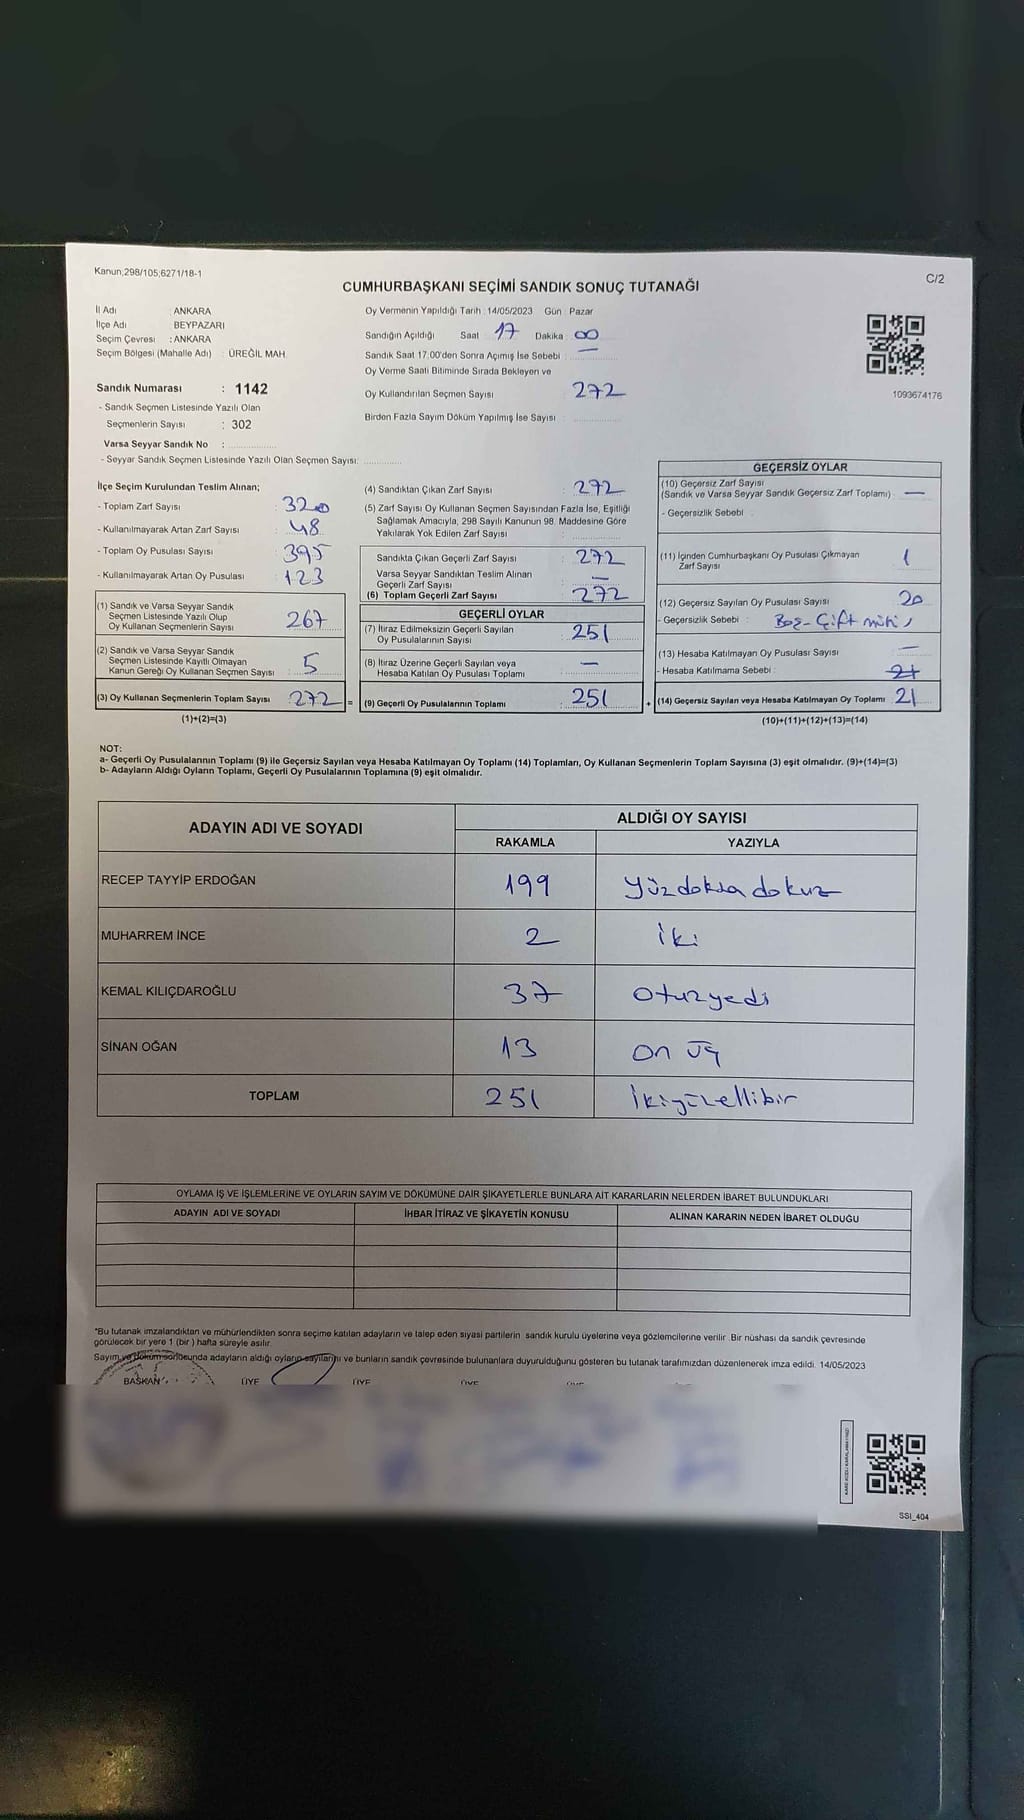 Kanun;298/105;6271/18-1
C/2
CUMHURBAŞKANI SEÇİMİ SANDIK SONUÇ TUTANAĞI
İl Adı : ANKARA
İlçe Adı BEYPAZARI
Seçim Çevresi : ANKARA
Seçim Bölgesi (Mahalle Adı) : ÜREĞİL MAH.
Oy Vermenin Yapıldığı Tarih : 14/05/2023 Gün : Pazar
Sandığın Açıldığı Saat 17 Dakika 00
Sandık Saat 17.00'den Sonra Açılmış İse Sebebi : —
Oy Verme Saati Bitiminde Sırada Bekleyen ve
Oy Kullandırılan Seçmen Sayısı : 272
Birden Fazla Sayım Döküm Yapılmış İse Sayısı :
1093674176
Sandık Numarası : 1142
- Sandık Seçmen Listesinde Yazılı Olan
Seçmenlerin Sayısı : 302
Varsa Seyyar Sandık No :
- Seyyar Sandık Seçmen Listesinde Yazılı Olan Seçmen Sayısı:
İlçe Seçim Kurulundan Teslim Alınan;
- Toplam Zarf Sayısı : 320
- Kullanılmayarak Artan Zarf Sayısı : 48
- Toplam Oy Pusulası Sayısı : 395
- Kullanılmayarak Artan Oy Pusulası : 123
(1) Sandık ve Varsa Seyyar Sandık
Seçmen Listesinde Yazılı Olup
Oy Kullanan Seçmenlerin Sayısı : 267
(2) Sandık ve Varsa Seyyar Sandık
Seçmen Listesinde Kayıtlı Olmayan
Kanun Gereği Oy Kullanan Seçmen Sayısı : 5
(3) Oy Kullanan Seçmenlerin Toplam Sayısı : 272 =
(1)+(2)=(3)
(4) Sandıktan Çıkan Zarf Sayısı : 272
(5) Zarf Sayısı Oy Kullanan Seçmen Sayısından Fazla İse, Eşitliği
Sağlamak Amacıyla; 298 Sayılı Kanunun 98. Maddesine Göre
Yakılarak Yok Edilen Zarf Sayısı :
Sandıkta Çıkan Geçerli Zarf Sayısı : 272
Varsa Seyyar Sandıktan Teslim Alınan
Geçerli Zarf Sayısı : —
(6) Toplam Geçerli Zarf Sayısı : 272
GEÇERLİ OYLAR
(7) İtiraz Edilmeksizin Geçerli Sayılan
Oy Pusulalarının Sayısı : 251
(8) İtiraz Üzerine Geçerli Sayılan veya
Hesaba Katılan Oy Pusulası Toplamı : —
(9) Geçerli Oy Pusulalarının Toplamı : 251 +
GEÇERSİZ OYLAR
(10) Geçersiz Zarf Sayısı
(Sandık ve Varsa Seyyar Sandık Geçersiz Zarf Toplamı) : —
- Geçersizlik Sebebi :
(11) İçinden Cumhurbaşkanı Oy Pusulası Çıkmayan
Zarf Sayısı : 1
(12) Geçersiz Sayılan Oy Pusulası Sayısı : 20
- Geçersizlik Sebebi : Boş- Çift
(13) Hesaba Katılmayan Oy Pusulası Sayısı : —
- Hesaba Katılmama Sebebi :
(14) Geçersiz Sayılan veya Hesaba Katılmayan Oy Toplamı : 21
(10)+(11)+(12)+(13)=(14)
NOT:
a- Geçerli Oy Pusulalarının Toplamı (9) ile Geçersiz Sayılan veya Hesaba Katılmayan Oy Toplamı (14) Toplamları, Oy Kullanan Seçmenlerin Toplam Sayısına (3) eşit olmalıdır. (9)+(14)=(3)
b- Adayların Aldığı Oyların Toplamı, Geçerli Oy Pusulalarının Toplamına (9) eşit olmalıdır.
ADAYIN ADI VE SOYADI
ALDIĞI OY SAYISI
RAKAMLA YAZIYLA
RECEP TAYYİP ERDOĞAN 199 yüzdoksadokuz
MUHARREM İNCE 2 iki
KEMAL KILIÇDAROĞLU 37 otuzyedi
SİNAN OĞAN 13 on üç
TOPLAM 251 ikiyüzellibir
OYLAMA İŞ VE İŞLEMLERİNE VE OYLARIN SAYIM VE DÖKÜMÜNE DAİR ŞİKAYETLERLE BUNLARA AİT KARARLARIN NELERDEN İBARET BULUNDUKLARI
ADAYIN ADI VE SOYADI İHBAR İTİRAZ VE ŞİKAYETİN KONUSU ALINAN KARARIN NEDEN İBARET OLDUĞU
*Bu tutanak imzalandıktan ve mühürlendikten sonra seçime katılan adayların ve talep eden siyasi partilerin sandık kurulu üyelerine veya gözlemcilerine verilir. Bir nüshası da sandık çevresinde
görülecek bir yere 1 (bir) hafta süreyle asılır.
Sayım ve Döküm sonucunda adayların aldığı oyların sayılarını ve bunların sandık çevresinde bulunanlara duyurulduğunu gösteren bu tutanak tarafımızdan düzenlenerek imza edildi. 14/05/2023
BAŞKAN ÜYE ÜYE ÜYE ÜYE ÜYE
SSI_404